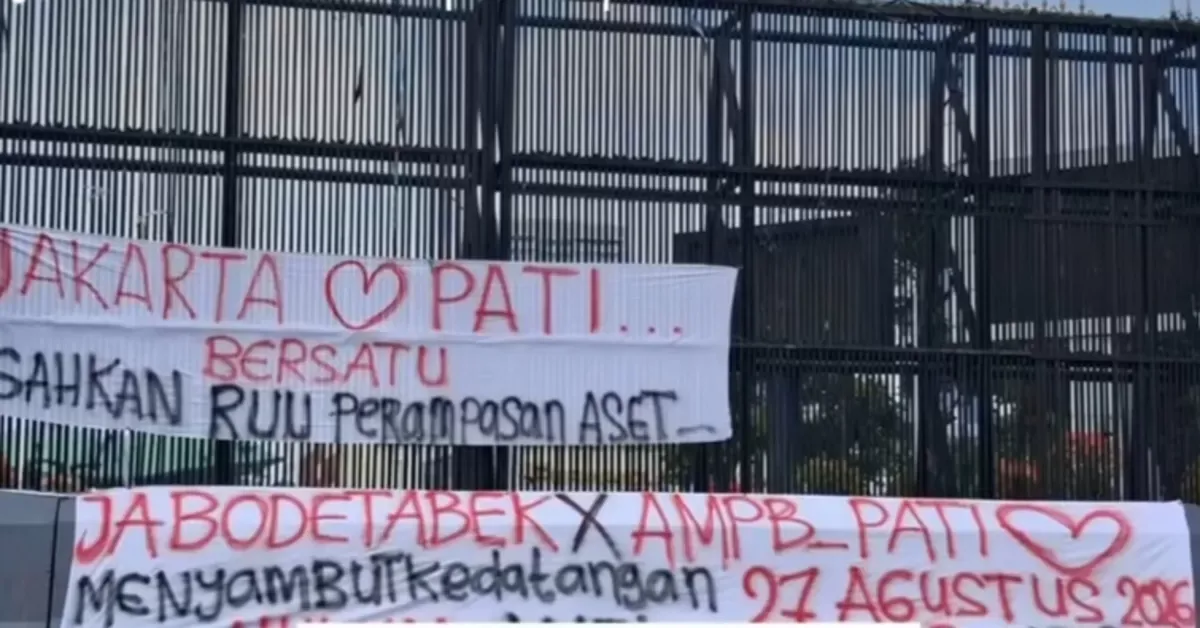 JAKARTA ♡ PATI...
BERSATU
SAHKAN RUU PERAMPASAN ASET_
JABODETABEK X AMPB_PATI ♡
MENYAMBUT Kedatangan 27 AGUSTUS 2026